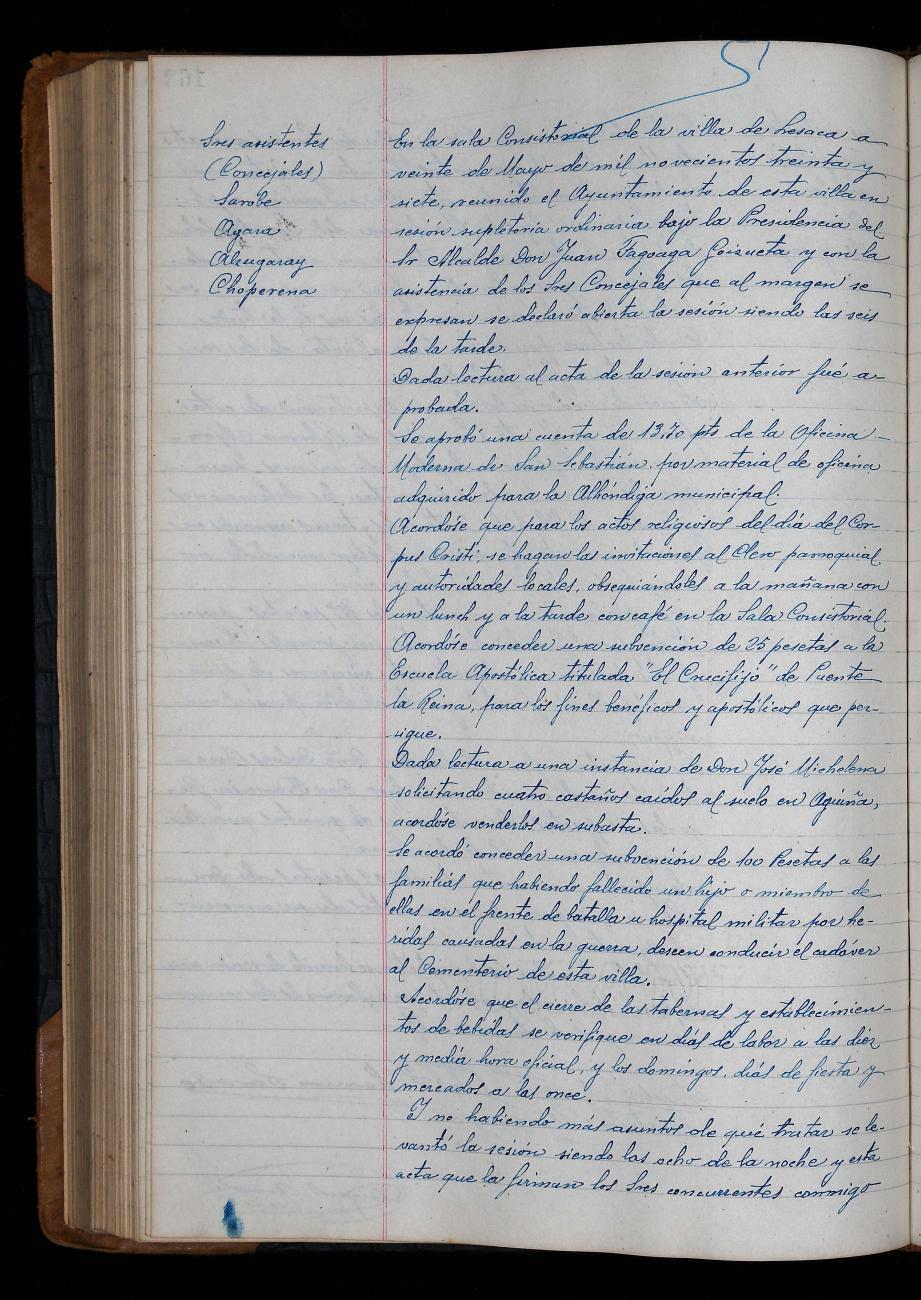 Sres asistentes
(Concejales)
Sarobe
Agara
Alzugaray
Choperena
En la sala Consistorial de la villa de Lesaca a
veinte de Mayo de mil novecientos treinta y
siete, reunido el Ayuntamiento de esta villa en
sesión supletoria ordinaria bajo la Presidencia del
Sr Alcalde Don Juan Fagoaga Goizueta y con la
asistencia de los Sres Concejales que al margen se
expresan se declaró abierta la sesión siendo las seis
de la tarde.
Dada lectura al acta de la sesión anterior fué a-
probada.
Se aprobó una cuenta de 13,70 pts de la Oficina
Moderna de San Sebastián por material de oficina
adquirido para la Alhóndiga municipal.
Acordóse que para los actos religiosos del día del Cor-
pus Cristi, se hagan las invitaciones al Clero parroquial
y autoridades locales, obsequiándoles a la mañana con
un lunch y a la tarde con café en la Sala Consistorial.
Acordóse conceder una subvención de 25 pesetas a la
Escuela Apostólica titulada "El Crucifijo" de Puente
la Reina, para los fines benéficos y apostólicos que per-
sigue.
Dada lectura a una instancia de Don José Michelena
solicitando cuatro castaños caídos al suelo en Aguiña,
acordóse venderlos en subasta.
Se acordó conceder una subvención de 100 Pesetas a las
familias que habiendo fallecido un hijo o miembro de
ellas en el frente de batalla u hospital militar por he-
ridas causadas en la guerra, deseen conducir el cadáver
al Cementerio de esta villa.
Acordóse que el cierre de las tabernas y establecimien-
tos de bebidas se verifique en días de labor a las diez
y media hora oficial, y los domingos, días de fiesta y
mercados a las once.
Y no habiendo más asuntos de qué tratar se le-
vantó la sesión siendo las ocho de la noche y esta
acta que la firman los Sres concurrentes conmigo